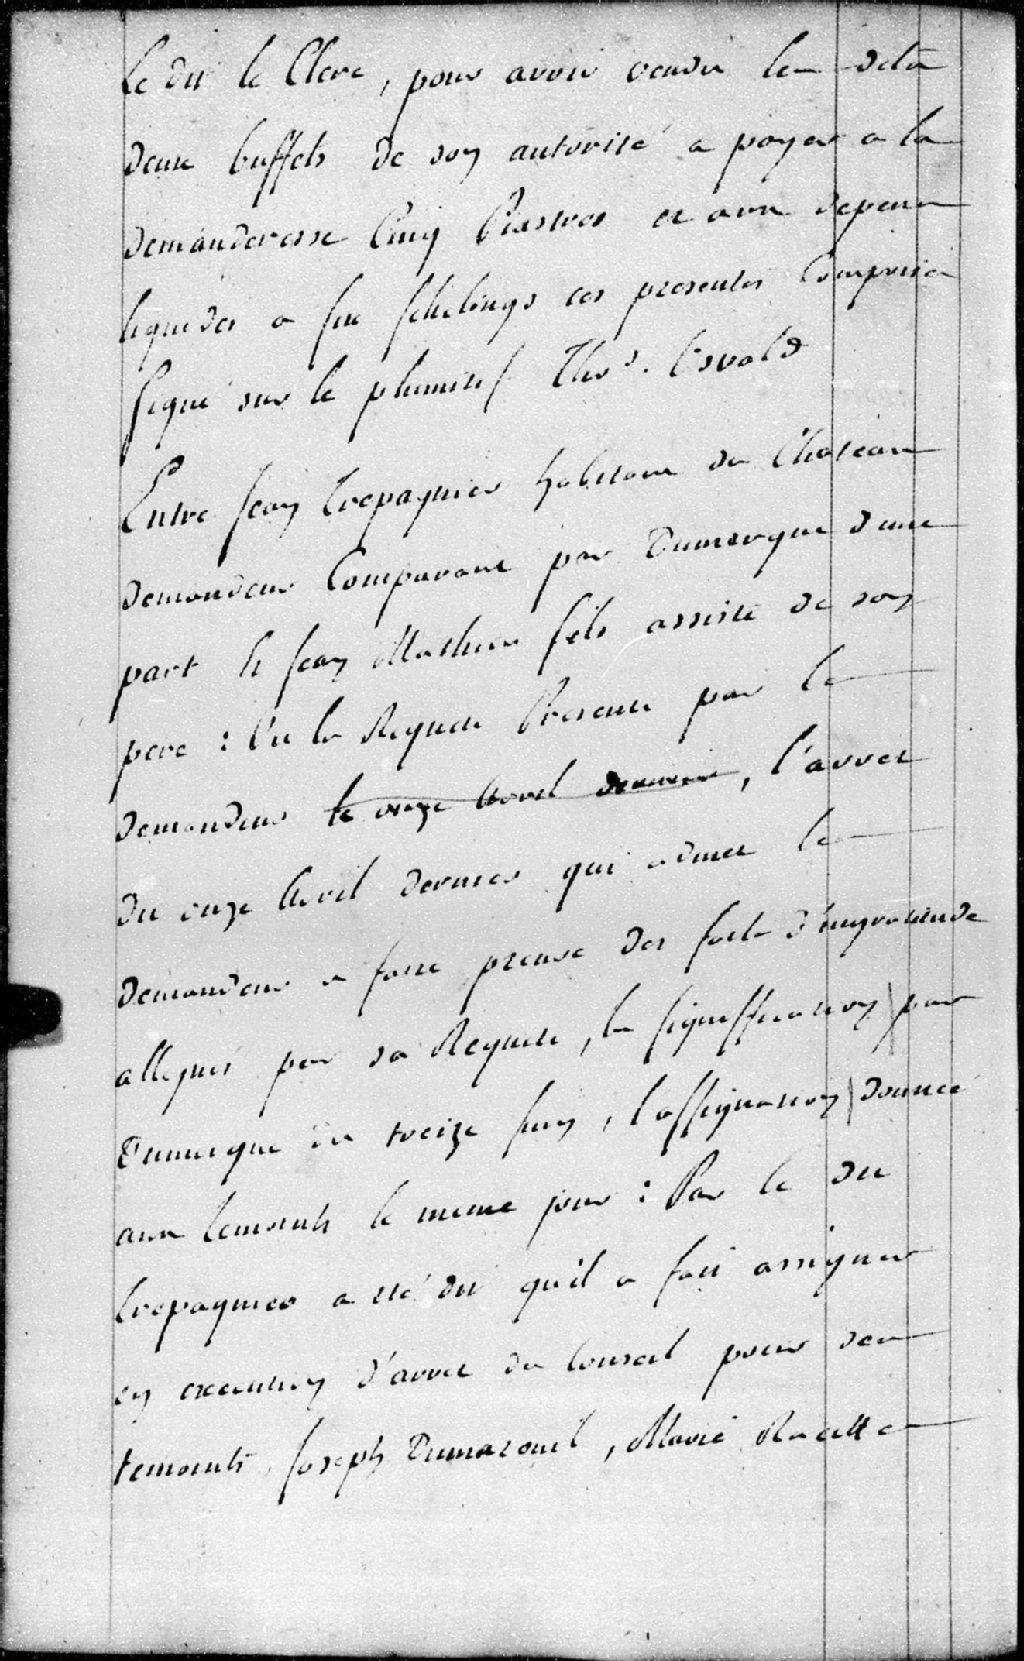 Le dit le Clerc, pour avoir vendu les dits
deux buffets de son autorité a payer a la
demanderesse Cinq Piastres et aux depens
liquidés a six schelings ces presentes Comprises
signé sur le plumitif
Entre Jean Trepagnier habitant du Chateau
demandeur Comparant par Dumergue d'une
part & Jean Mathieu fils assisté de son
pere : Vu la Requete Presenté par le
demandeur le onze Avril dernier, l'arret
du onze Avril dernier qui admet le
demandeur a faire preuve des faits d'ingratitude
allegués par sa Requete, la signiffication par
Dumergue du treize Juin, l'assignation donnée
aux temoins le meme jour : Par le dit
Trepagnier a été dit qu'il a fait assigner
en execution d'arret du Conseil pour ses
temoins, Joseph, Marie Racette